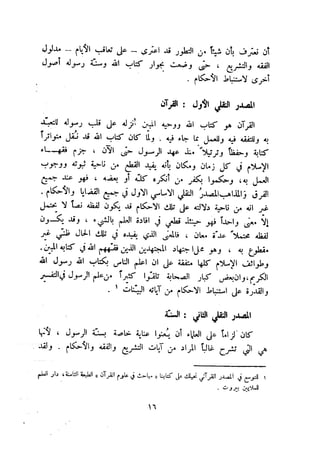 أن نعترف بأن شيئاً من التطور قد اعترى – على تعاقب الأيام – مدلول
الفقه والتشريع ، حتى وضعت بجوار كتاب الله وسنّة رسوله أصول
أخرى لاستنباط الأحكام .
المصدر النقلي الأول : القرآن
القرآن هو كتاب الله ووحيه المبين أنزله على قلب رسوله للتعبّد
به وللتفقه فيه وللعمل بما جاء فيه . ولما كان كتاب الله قد نُقل متواتراً
كتابة وحفظاً وترتيلاً منذ عهد الرسول حتى الآن ، جزم فقهاء
الإسلام في كل زمان ومكان بأنه يفيد القطع من ناحية ثبوته ووجوب
العمل به، وحكموا بكفر من أنكره كلّه أو بعضه ، فهو عند جميع
الفرق والمذاهب المصدر النقلي الاساسي الأول في جميع القضايا والأحكام .
غير انه من ناحية دلالته على تلك الاحكام قد يكون لفظه نصاً لا يحتمل
إلاّ معنى واحداً فهو حينئذ قطعي في افادة العلم بالشيء ، وقد يكون
لفظه محتملاً عدّة معان ، فالمعنى الذي يفيده في تلك الحال ظنّي غير
مقطوع به ، وهو محل اجتهاد المجتهدين الذين فقّههم الله في كتابه المبين .
وطوائف الإسلام كلها متفقة على ان اعلم الناس بكتاب الله رسول الله
الكريم، وان بعض كبار الصحابة تلقوا كثيراً من علم الرسول في التفسير
والقدرة على استنباط الأحكام من آياته البيّنات ١ .
المصدر النقلي الثاني : السنّة
كان لزاماً على العلماء أن يُعنوا عناية خاصة بسنّة الرسول ، لأنها
هي التي تشرح غالباً المراد من آيات التشريع والفقه والأحكام . ولقد
١ للتوسع في المصدر القرآني نحيلك على كتابنا « مباحث في علوم القرآن » الطبعة الثامنة، دار العلم
للملايين بيروت .
١٦